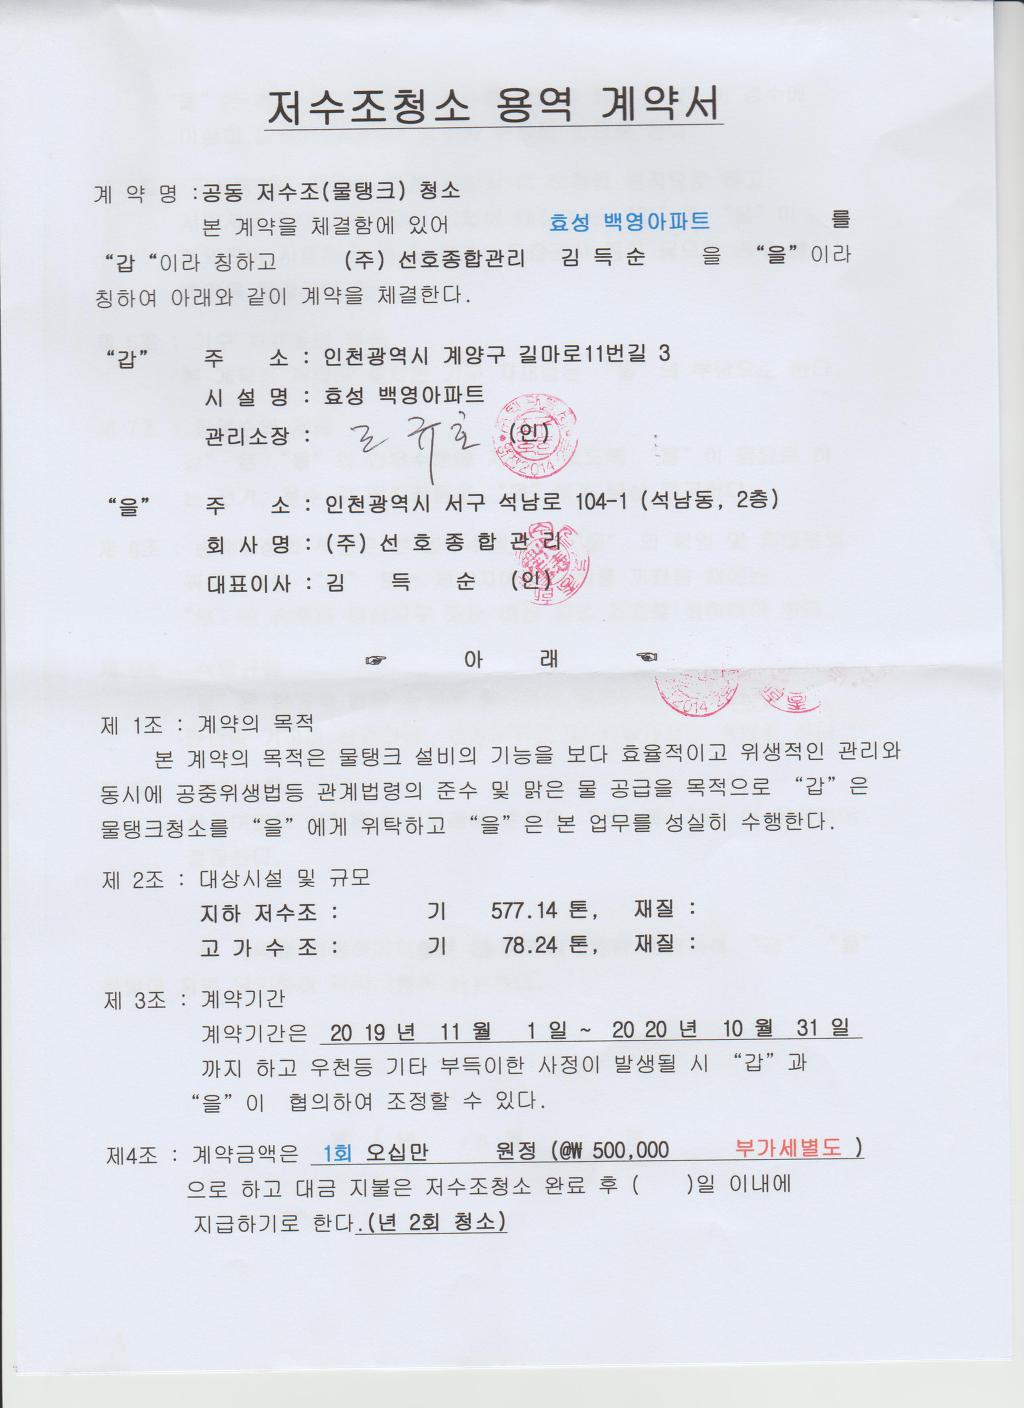 저수조청소 용역 계약서
계 약 명 :공동 저수조(물탱크) 청소
본 계약을 체결함에 있어 효성 백영아파트 를
“갑 “이라 칭하고 (주) 선호종합관리 김 득 순 을 “을”이라
칭하여 아래와 같이 계약을 체결한다.
“갑” 주 소 : 인천광역시 계양구 길마로11번길 3
시 설 명 : 효성 백영아파트
관리소장 : (인)
“을” 주 소 : 인천광역시 서구 석남로 104-1 (석남동, 2층)
회 사 명 : (주) 선 호 종 합 관 리
대표이사 : 김 득 순 (인)
☞ 아 래 ☜
제 1조 : 계약의 목적
본 계약의 목적은 물탱크 설비의 기능을 보다 효율적이고 위생적인 관리와
동시에 공중위생법등 관계법령의 준수 및 맑은 물 공급을 목적으로 “갑”은
물탱크청소를 “을”에게 위탁하고 “을”은 본 업무를 성실히 수행한다.
제 2조 : 대상시설 및 규모
지하 저수조 : 기 577.14 톤, 재질 :
고 가 수 조 : 기 78.24 톤, 재질 :
제 3조 : 계약기간
계약기간은 20 19 년 11 월 1 일 ~ 20 20 년 10 월 31 일
까지 하고 우천등 기타 부득이한 사정이 발생될 시 “갑”과
“을”이 협의하여 조정할 수 있다.
제4조 : 계약금액은 1회 오십만 원정 (@₩ 500,000 부가세별도 )
으로 하고 대금 지불은 저수조청소 완료 후 ( )일 이내에
지급하기로 한다.(년 2회 청소)